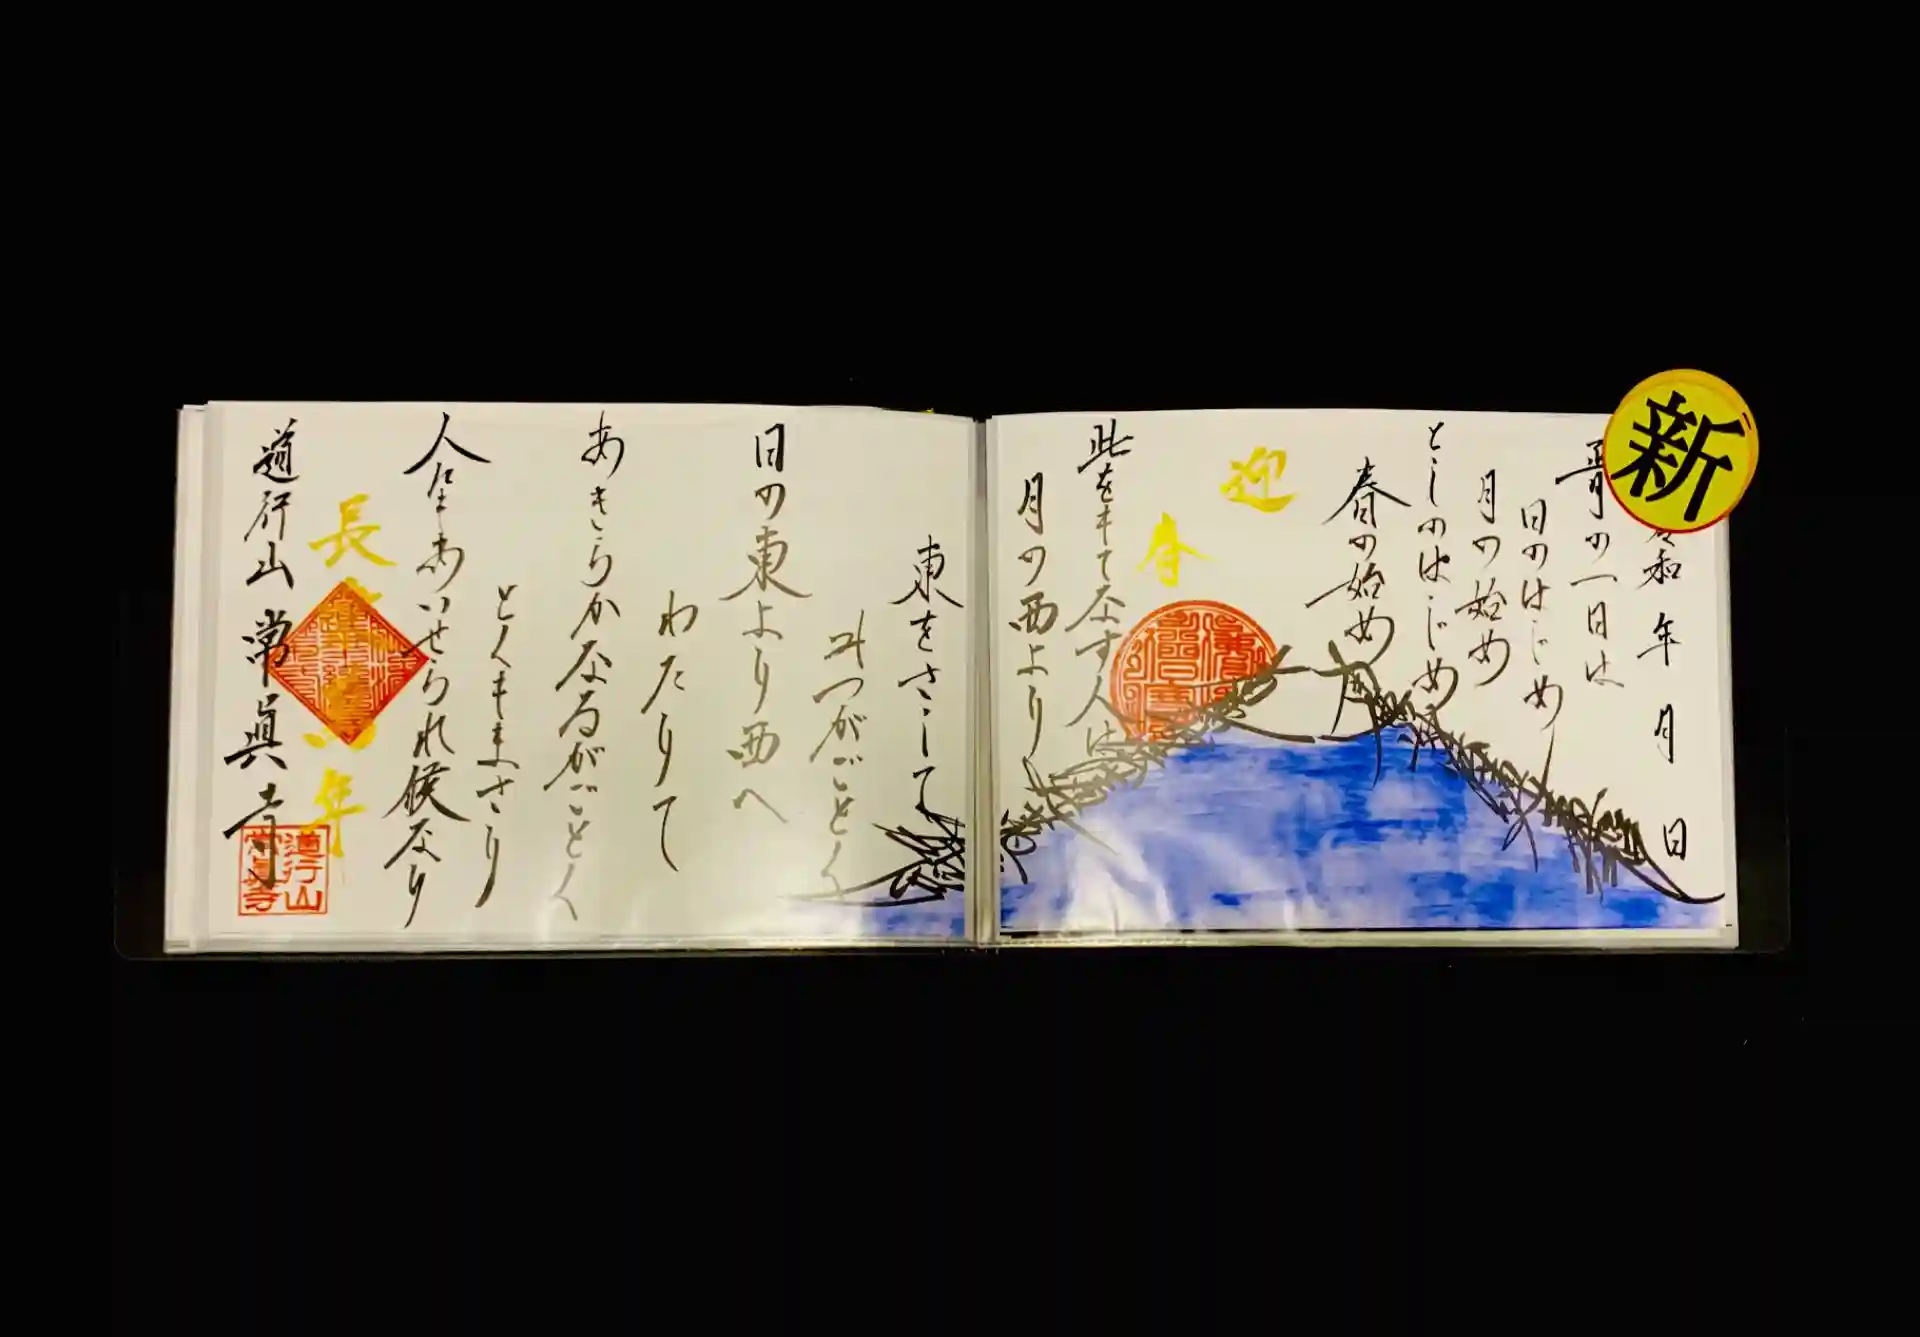 新
令和 年 月 日
正月の一日は
日のはじめ
月の始め
としのはじめ
春の始め
迎春
此をもてなす人は
月の西より
東をさして
みつがごとく
日の東より西へ
わたりて
あきらかなるがごとく
とくもまさり
人にもあいせられ候なり
道行山 常眞寺
道行山
常眞寺